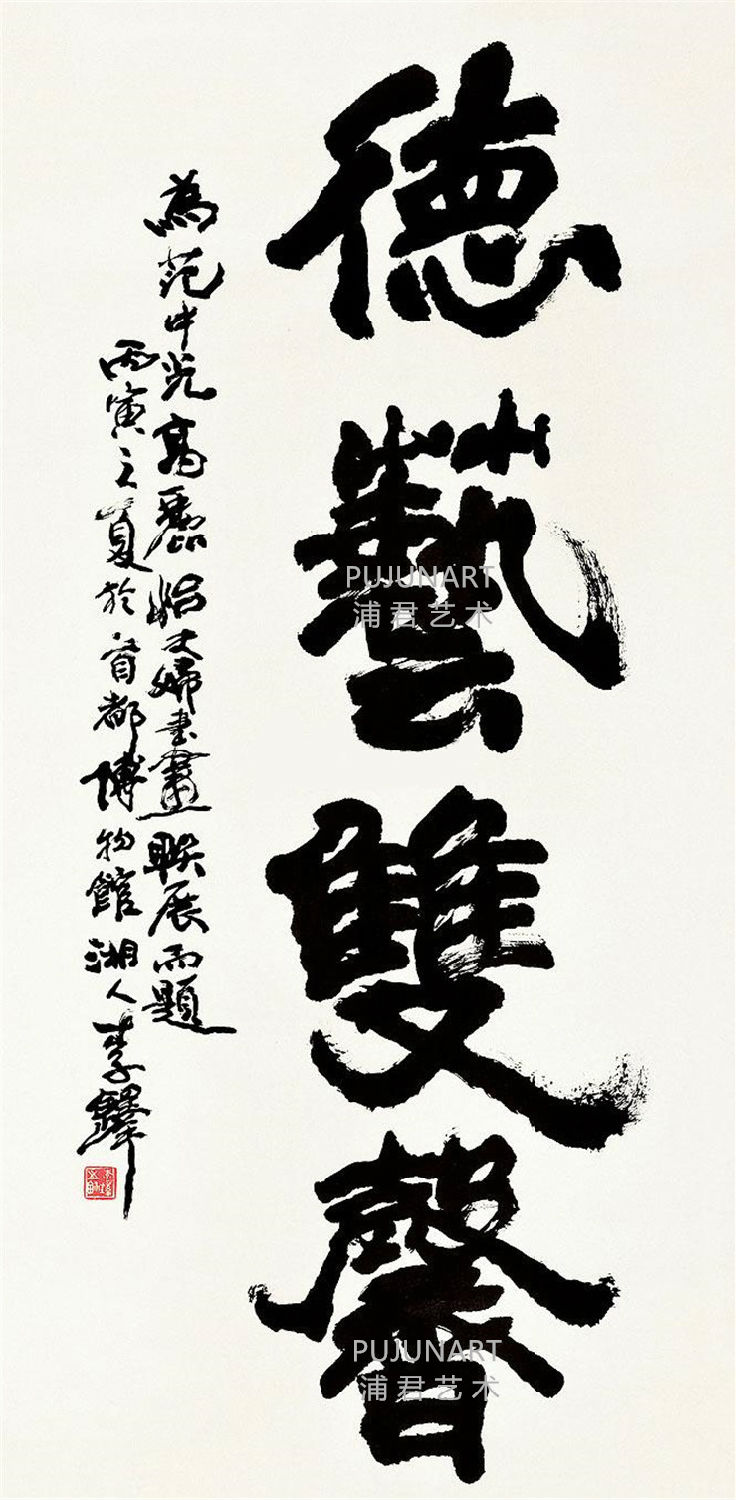 德藝雙馨
為范中光高麗怡夫婦書畫聯展而題
丙寅之夏於首都博物館湘人李鐸
PUJUNART
浦君艺术
PUJUNART
浦君艺术